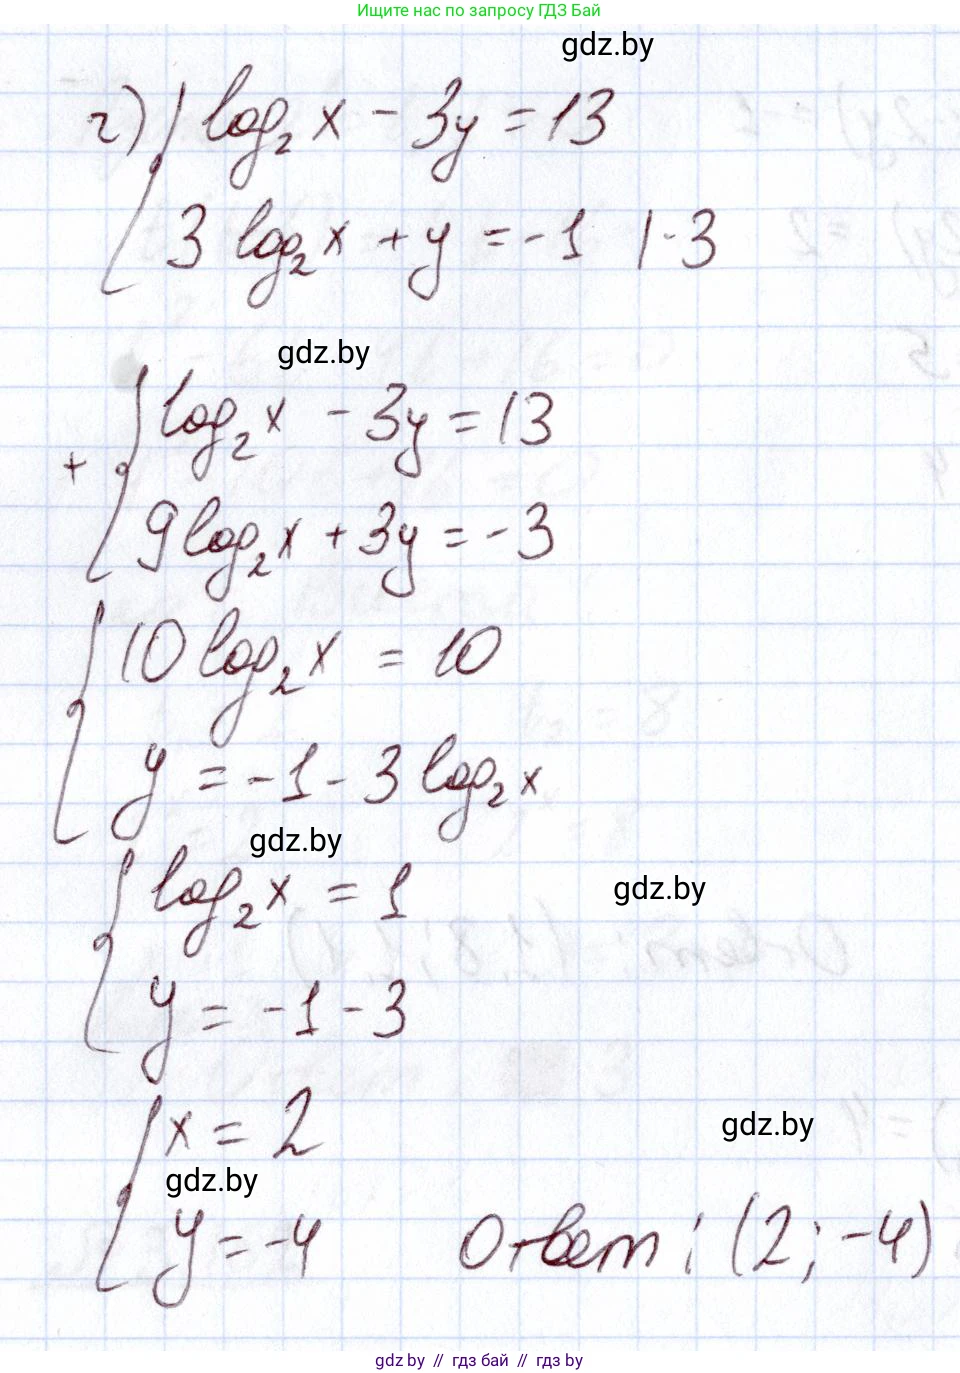 Ищите нас по запросу ГДЗ Бай
gdz.by
г) { log₂ x - 3y = 13
3 log₂ x + y = -1 | · 3
gdz.by
+ { log₂ x - 3y = 13
9 log₂ x + 3y = -3
{ 10 log₂ x = 10
y = -1 - 3 log₂ x
gdz.by
{ log₂ x = 1
gdz.by
y = -1 - 3
{ x = 2
gdz.by
gdz.by
y = -4 Ответ: (2; -4)
gdz.by // гдз бай // гдз by